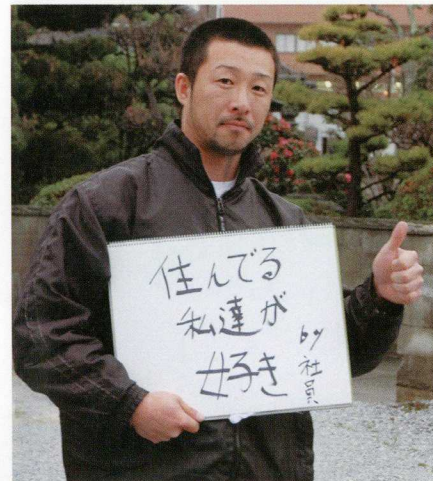 住んでる
私達が
好き
by 社員